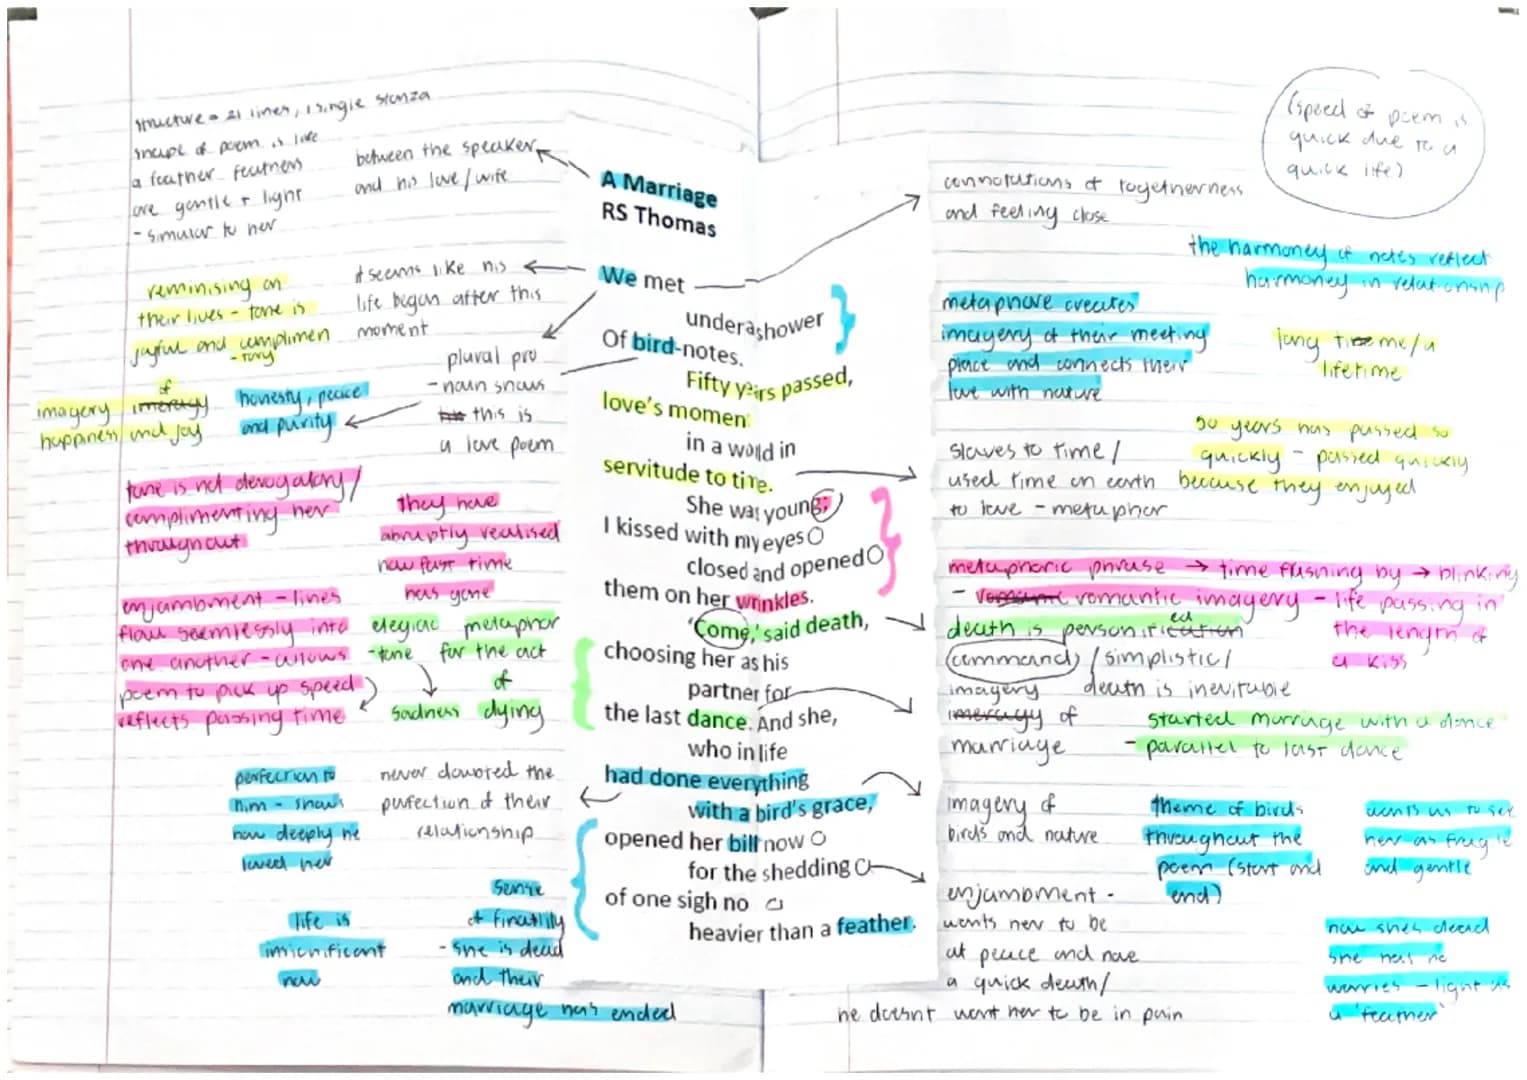 structure = 21 lines, 1 single stanza
shape of poem is like
a feather feathers
are gentle + light
- simular to her
between the speaker
and his love/wife
A Marriage
RS Thomas
We met
under a shower
Of bird-notes.
Fifty years passed,
love's momen
in a world in
servitude to time.
She was young;
I kissed with my eyes
closed and opened
them on her wrinkles.
'Come,' said death,
choosing her as his
partner for
the last dance. And she,
who in life
had done everything
with a bird's grace,
opened her bill now
for the shedding
of one sigh no
heavier than a feather.
reminising on
their lives - tone is
joyful and complimen
-tary
it seems like his
life began after this
moment
plural pro
-noun shows
this is
a love poem
imagery of
happiness and joy
honesty, peace
and purity
tone is not derogatory/
complimenting her
throughout
they have
abruptly realised
how fast time
has gone
enjambment - lines
flow seemlessly into
one another - allows
poem to pick up speed
reflects passing time
elegiac
-tone
sadness
metaphor
for the act
of
dying
perfection to
him - shows
how deeply he
loved her
never doubted the
perfection of their
relationship
life is
insicnificant
now
sense
of finatlily
- she is dead
and their
marriage has ended
(speed of poem is
quick due to a
quick life)
connotations of togetherness
and feeling close
the harmoney of notes reflect
harmoney in relationship
metaphore creates
imagery of their meeting
place and connects their
love with nature
long time/a
lifetime
50 years has passed so
quickly - passed quickly
because they enjoyed
slaves to time/
used time on earth
to love - metaphor
metaphoric phrase → time flashing by → blinking
- romantic imagery - life passing in
the length of
a kiss
death is personified
(command) / simplistic/
death is inevitable
imagery
of
marriage
started marriage with a dance
- parallel to last dance
imagery of
birds and nature
theme of birds
throughout the
poem (start and
end)
wants us to see
her as fragile
and gentle
enjambment -
wants her to be
at peace and have
a quick death/
he doesnt want her to be in pain
now shes dead
she has no
worries - light as
a 'feather'